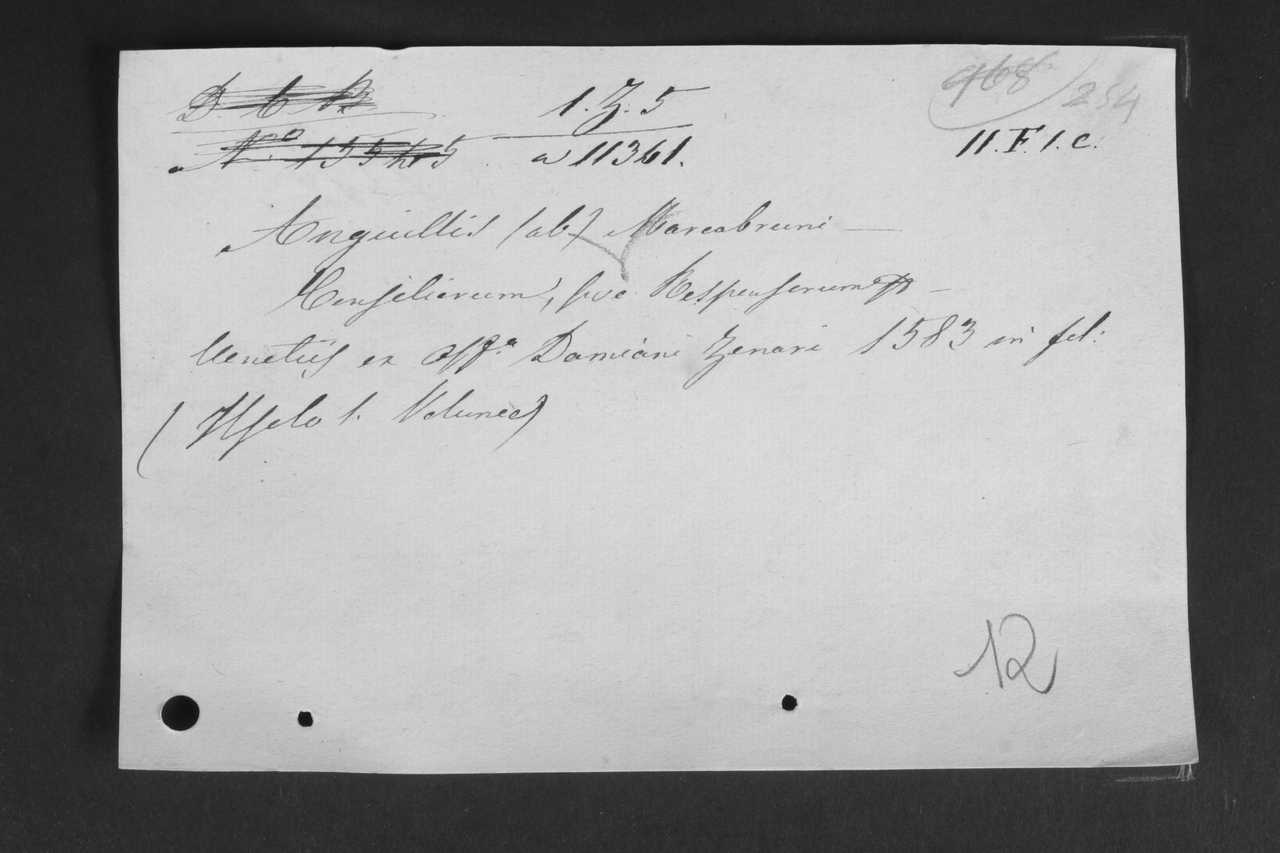 D. C. B 1. Z. 5 968 254
No. 155 a 11361. 11. F. 1. c.
Anguillis (ab) Marcabruni
Consiliorum, sive Responsorum
Venetiis ex offa. Damiani Zenari 1583 in fol:
( Il solo 1. Volume)
12